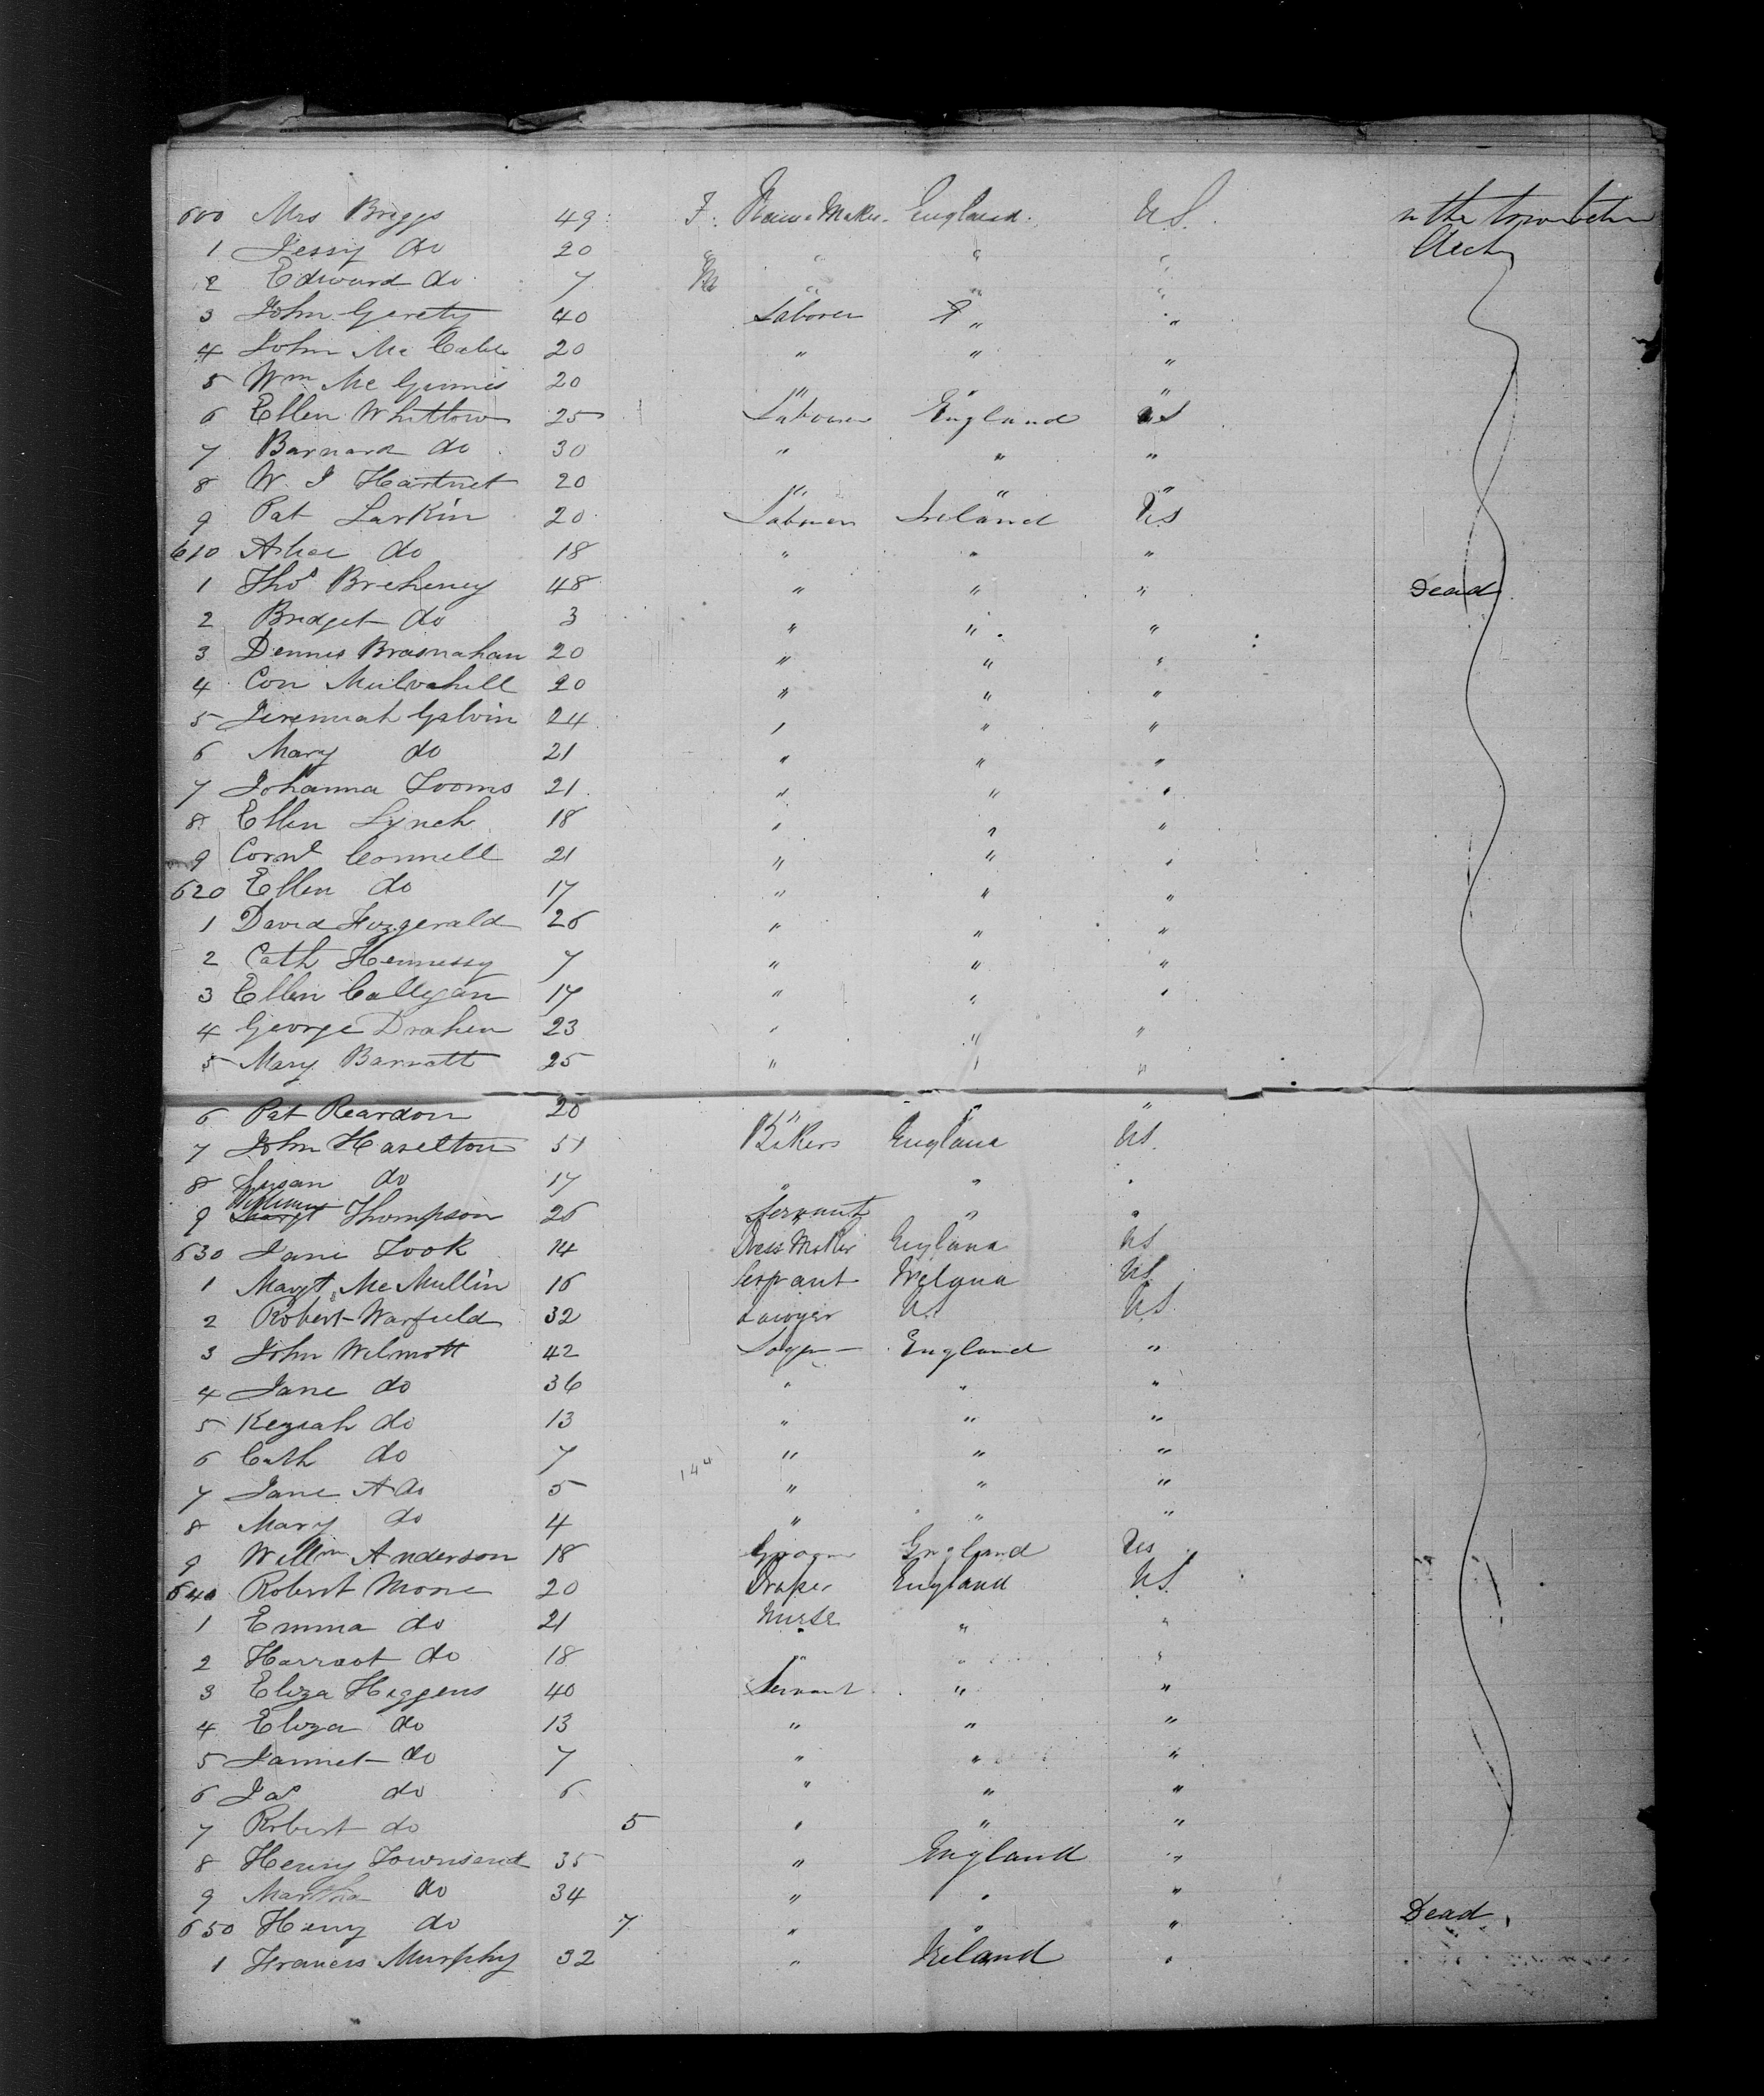 600 Mrs Briggs 49 F. Maker England. U.S.
1 Jessy do 20 " " " "
2 Edward do 7 M " " "
3 John Gerety 40 Laborer " "
4 John Mc Cabe 20 " " "
5 Wm Mc Ginnis 20 " " "
6 Ellen Whittow 25 Laborer England US
7 Barnard do 30 " " "
8 W. J Hartnet 20 " " "
9 Pat Larkin 20 Laborer Ireland US
610 do 18 " " "
1 Thos Breheney 48 " " " Dead
2 Bridget do 3 " " "
3 Dennis Brasnahan 20 " " "
4 Con Mulvahill 20 " " "
5 Jeremiah Galvin 24 " " "
6 Mary do 21 " " "
7 Johanna Looms 21 " " "
8 Ellen Lynch 18 " " "
9 Cornl Connell 21 " " "
620 Ellen do 17 " " "
1 David Fizgerald 26 " " "
2 Cath Hennessy 7 " " "
3 Ellen Calligan 17 " " "
4 George Draken 23 " " "
5 Mary Barratt 25 " " "
6 Pat Reardon 20 " " "
7 John Haselton 51 Bakers England US.
8 Susan do 17 " " "
9 Thompson 26 Servant " "
630 Jane Look 14 Dress Maker England US
1 Margt McMullin 16 Servant US
2 Robert Warfield 32 Lawyer US US
3 John Wilmott 42 England "
4 Jane do 36 " " "
5 Keziah do 13 " " "
6 Cath do 7 " " "
7 Jane A do 5 " " "
8 Mary do 4 " " "
9 Willm Anderson 18 Groom England US
640 Robert Mone 20 Draper England US.
1 Emma do 21 Nurse " "
2 Harraot do 18 " " "
3 Eliza Higgens 40 Servant " "
4 Eliza do 13 " " "
5 Jannet do 7 " " "
6 Jas do 6 " " "
7 Robert do 5 " " "
8 Henry Townsend 35 " England "
9 Martha do 34 " " "
650 Henry do 7 " " " Dead
1 Francis Murphy 32 " Ireland "